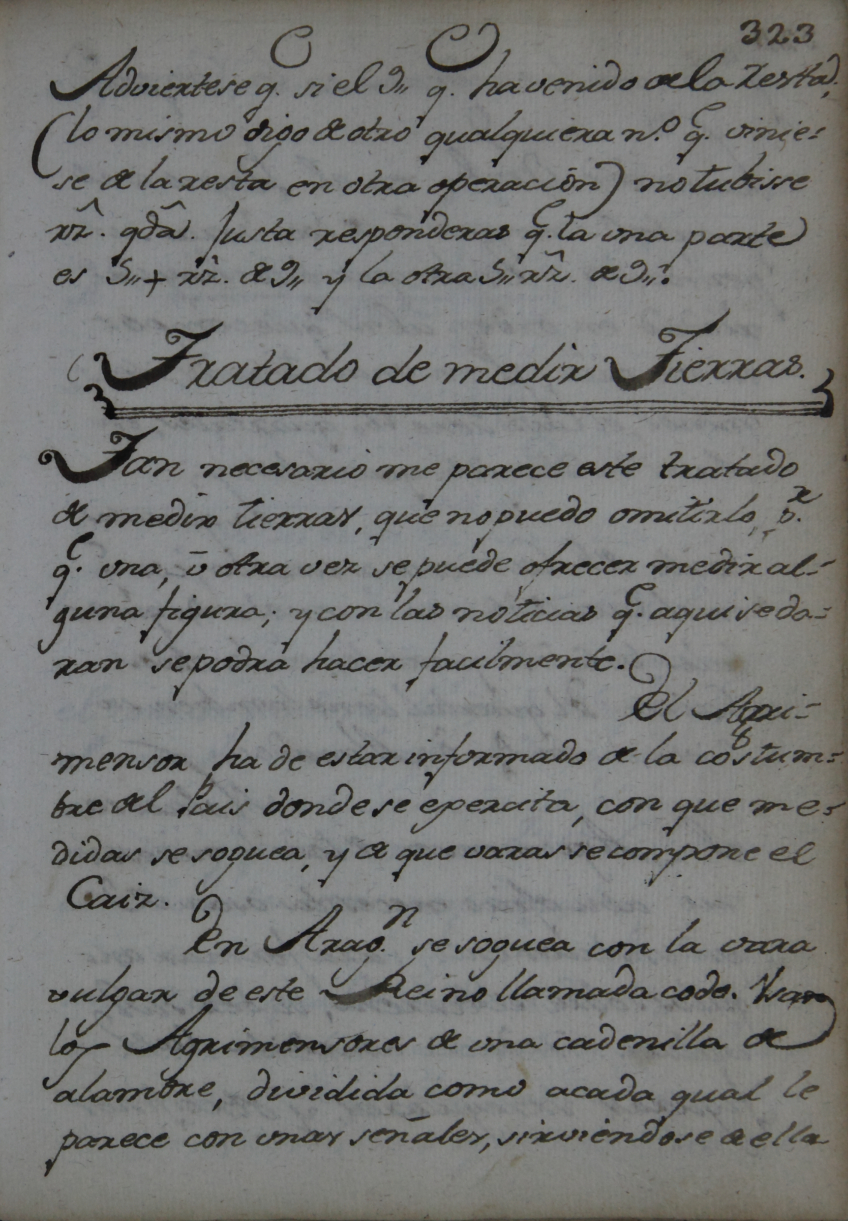 323
Adviertese q. si el 9,, q. ha venido de la resta
(lo mismo digo de otro qualquiera n.º q. vinie-
se de la resta en otra operación) no tubisse
rz. qda. justa responderas q. la una parte
es 5,,+ rz. de 9,, y la otra 5,, rz. de 9,,.
Tratado de medir Tierras.
Tan necesario me parece este tratado
de medir tierras, que no puedo omitirlo, p.r
q. una, ū otra vez se puede ofrecer medir al-
guna figura; y con las noticias q. aqui se da-
ran se podrá hacer facilmente.
El Agri-
mensor ha de estar informado de la costum-
bre del Pais donde se egercita, con que me-
didas se soguea, y de que varas se compone el
Caiz.
En Arag.n se soguea con la vara
vulgar de este Reino llamada codo. Usan
los Agrimensores de una cadenilla de
alambre, dividida como acada qual le
parece con unas señales, sirviendose de ella